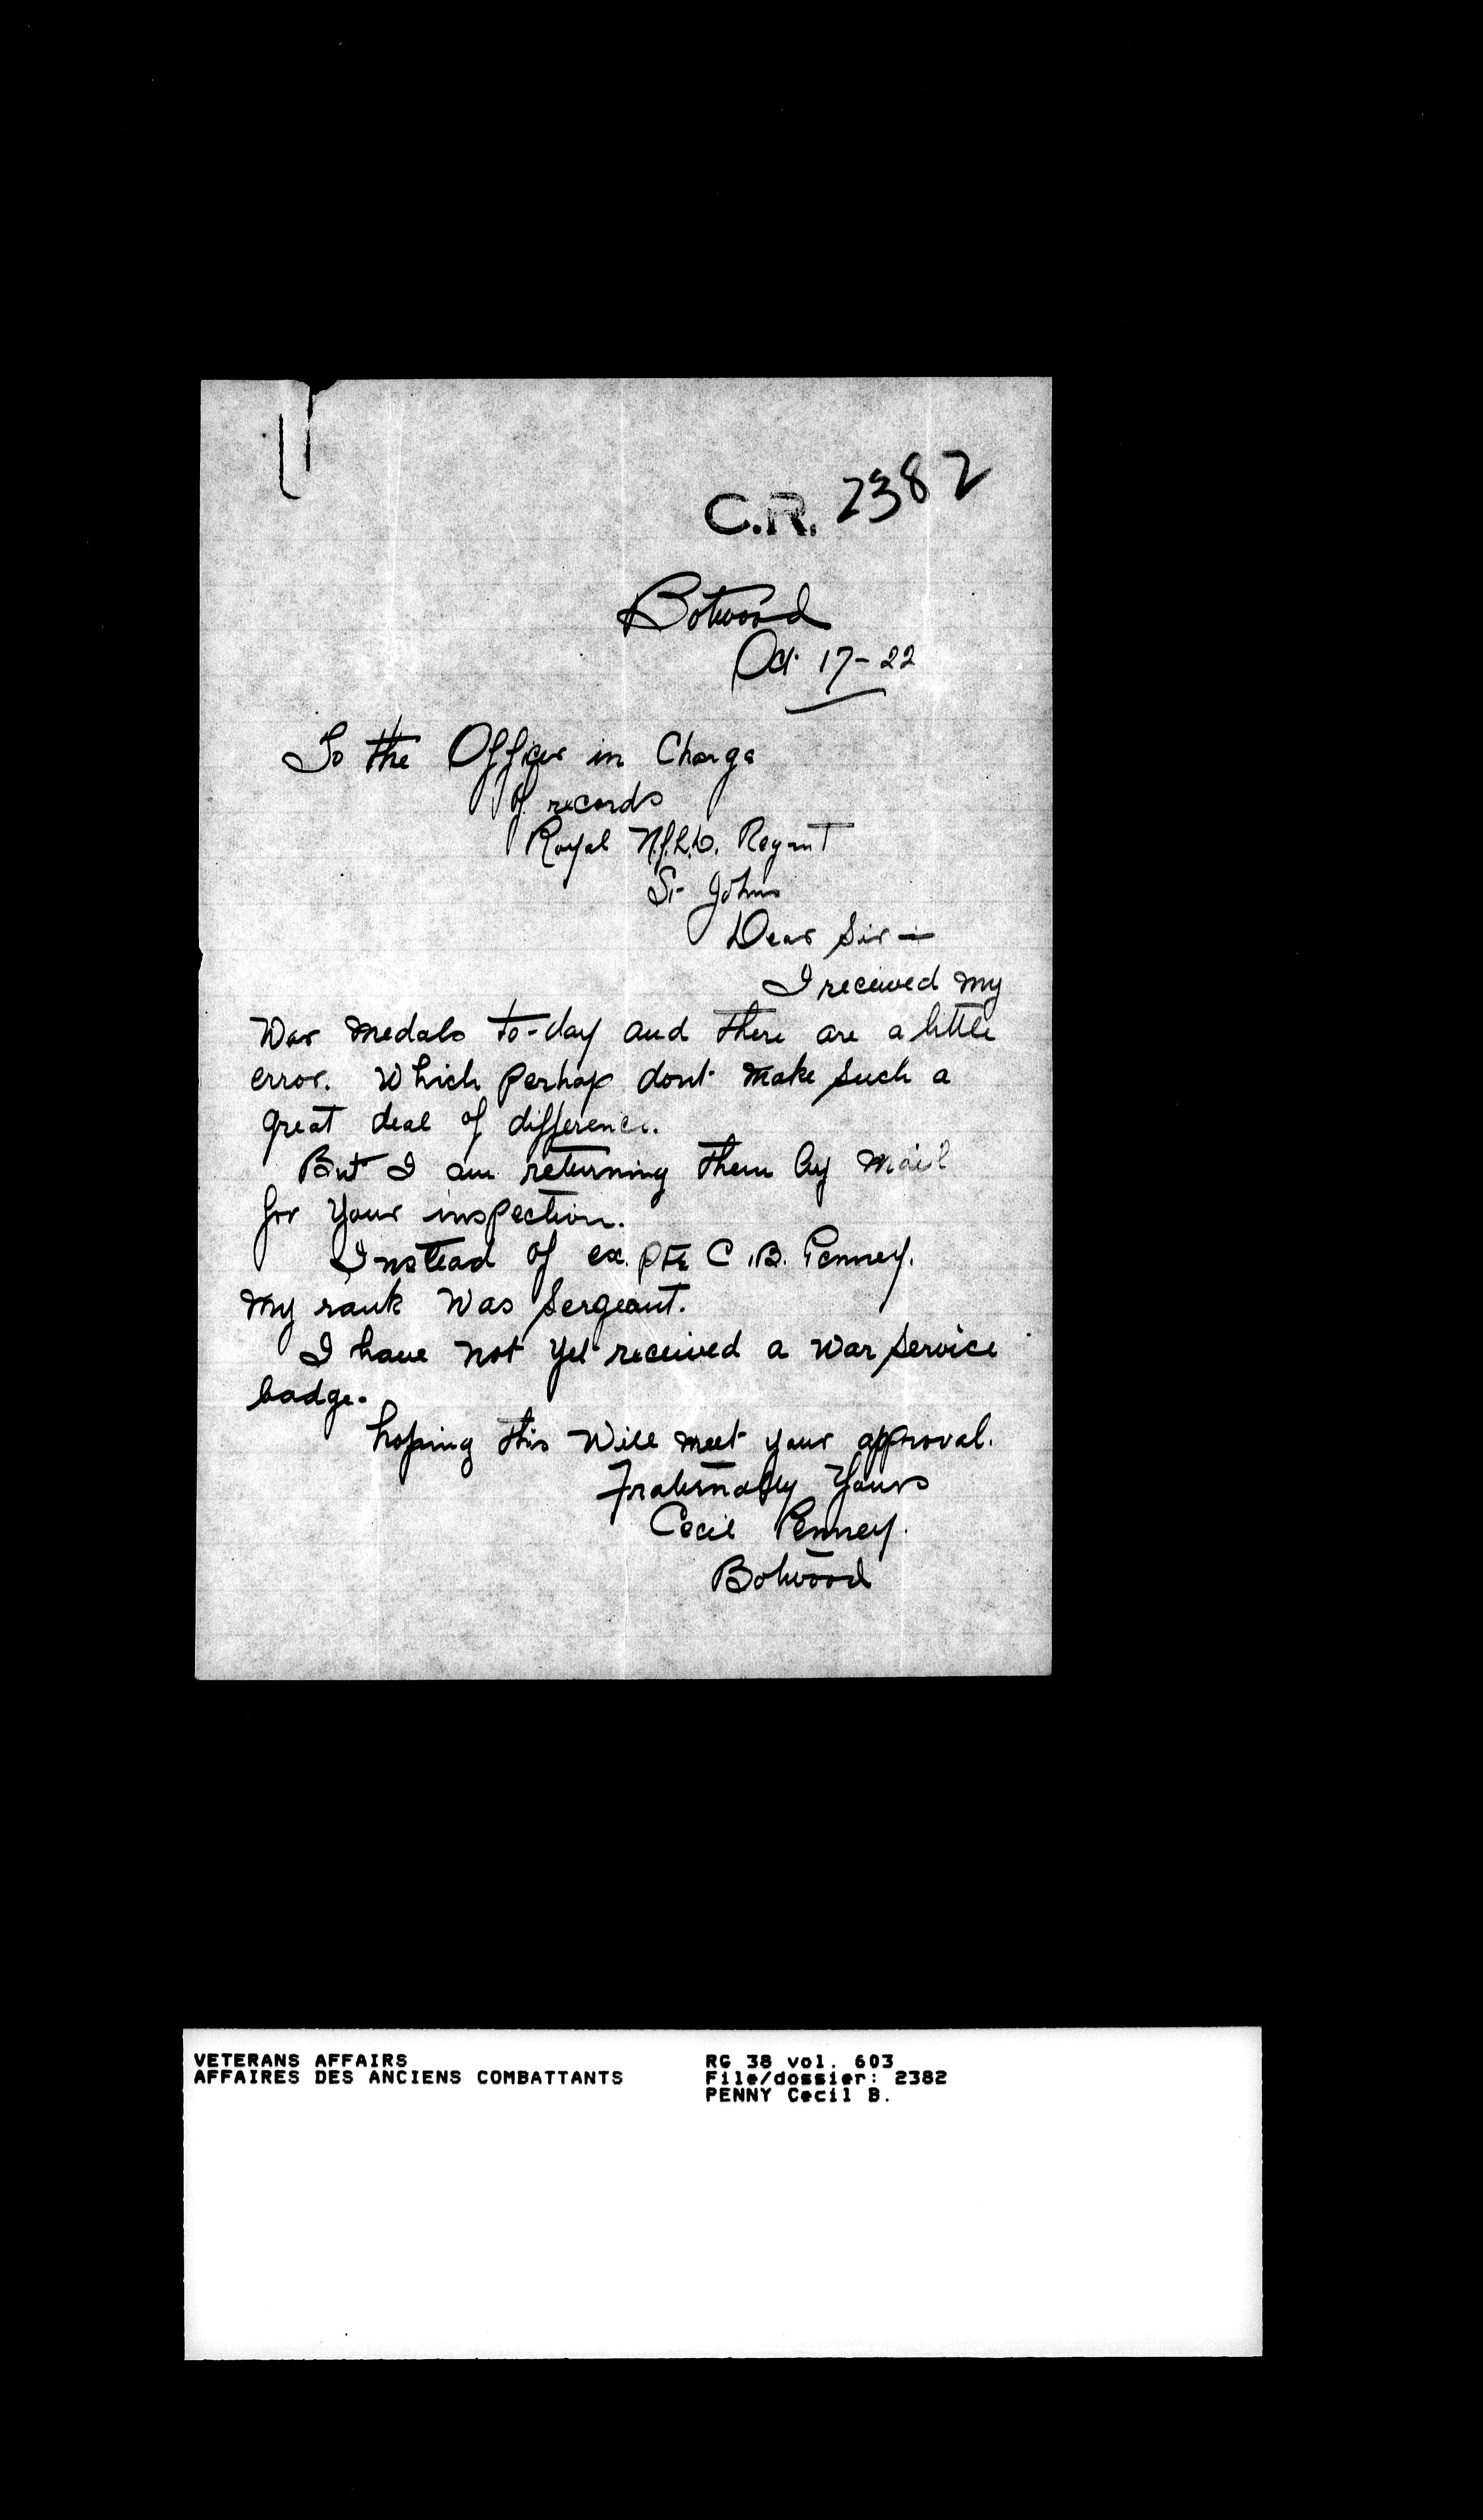 C.R. 2382
Botwood
Oct 17-22
To the Officer in Charge
of records
Royal Nfld. Regmt
St Johns
Dear Sir —
I received my
War medals to-day and there are a little
error. Which perhap dont make such a
great deal of difference.
But I am returning them by mail
for Your inspection.
Instead of ex. Pte C.B. Penney.
My rank Was Sergeant.
I have not yet received a War Service
badge.
hoping this Will meet your approval.
Fraternally Yours
Cecil Penney.
Botwood
VETERANS AFFAIRS RG 38 vol. 603
AFFAIRES DES ANCIENS COMBATTANTS File/dossier: 2382
PENNY Cecil B.